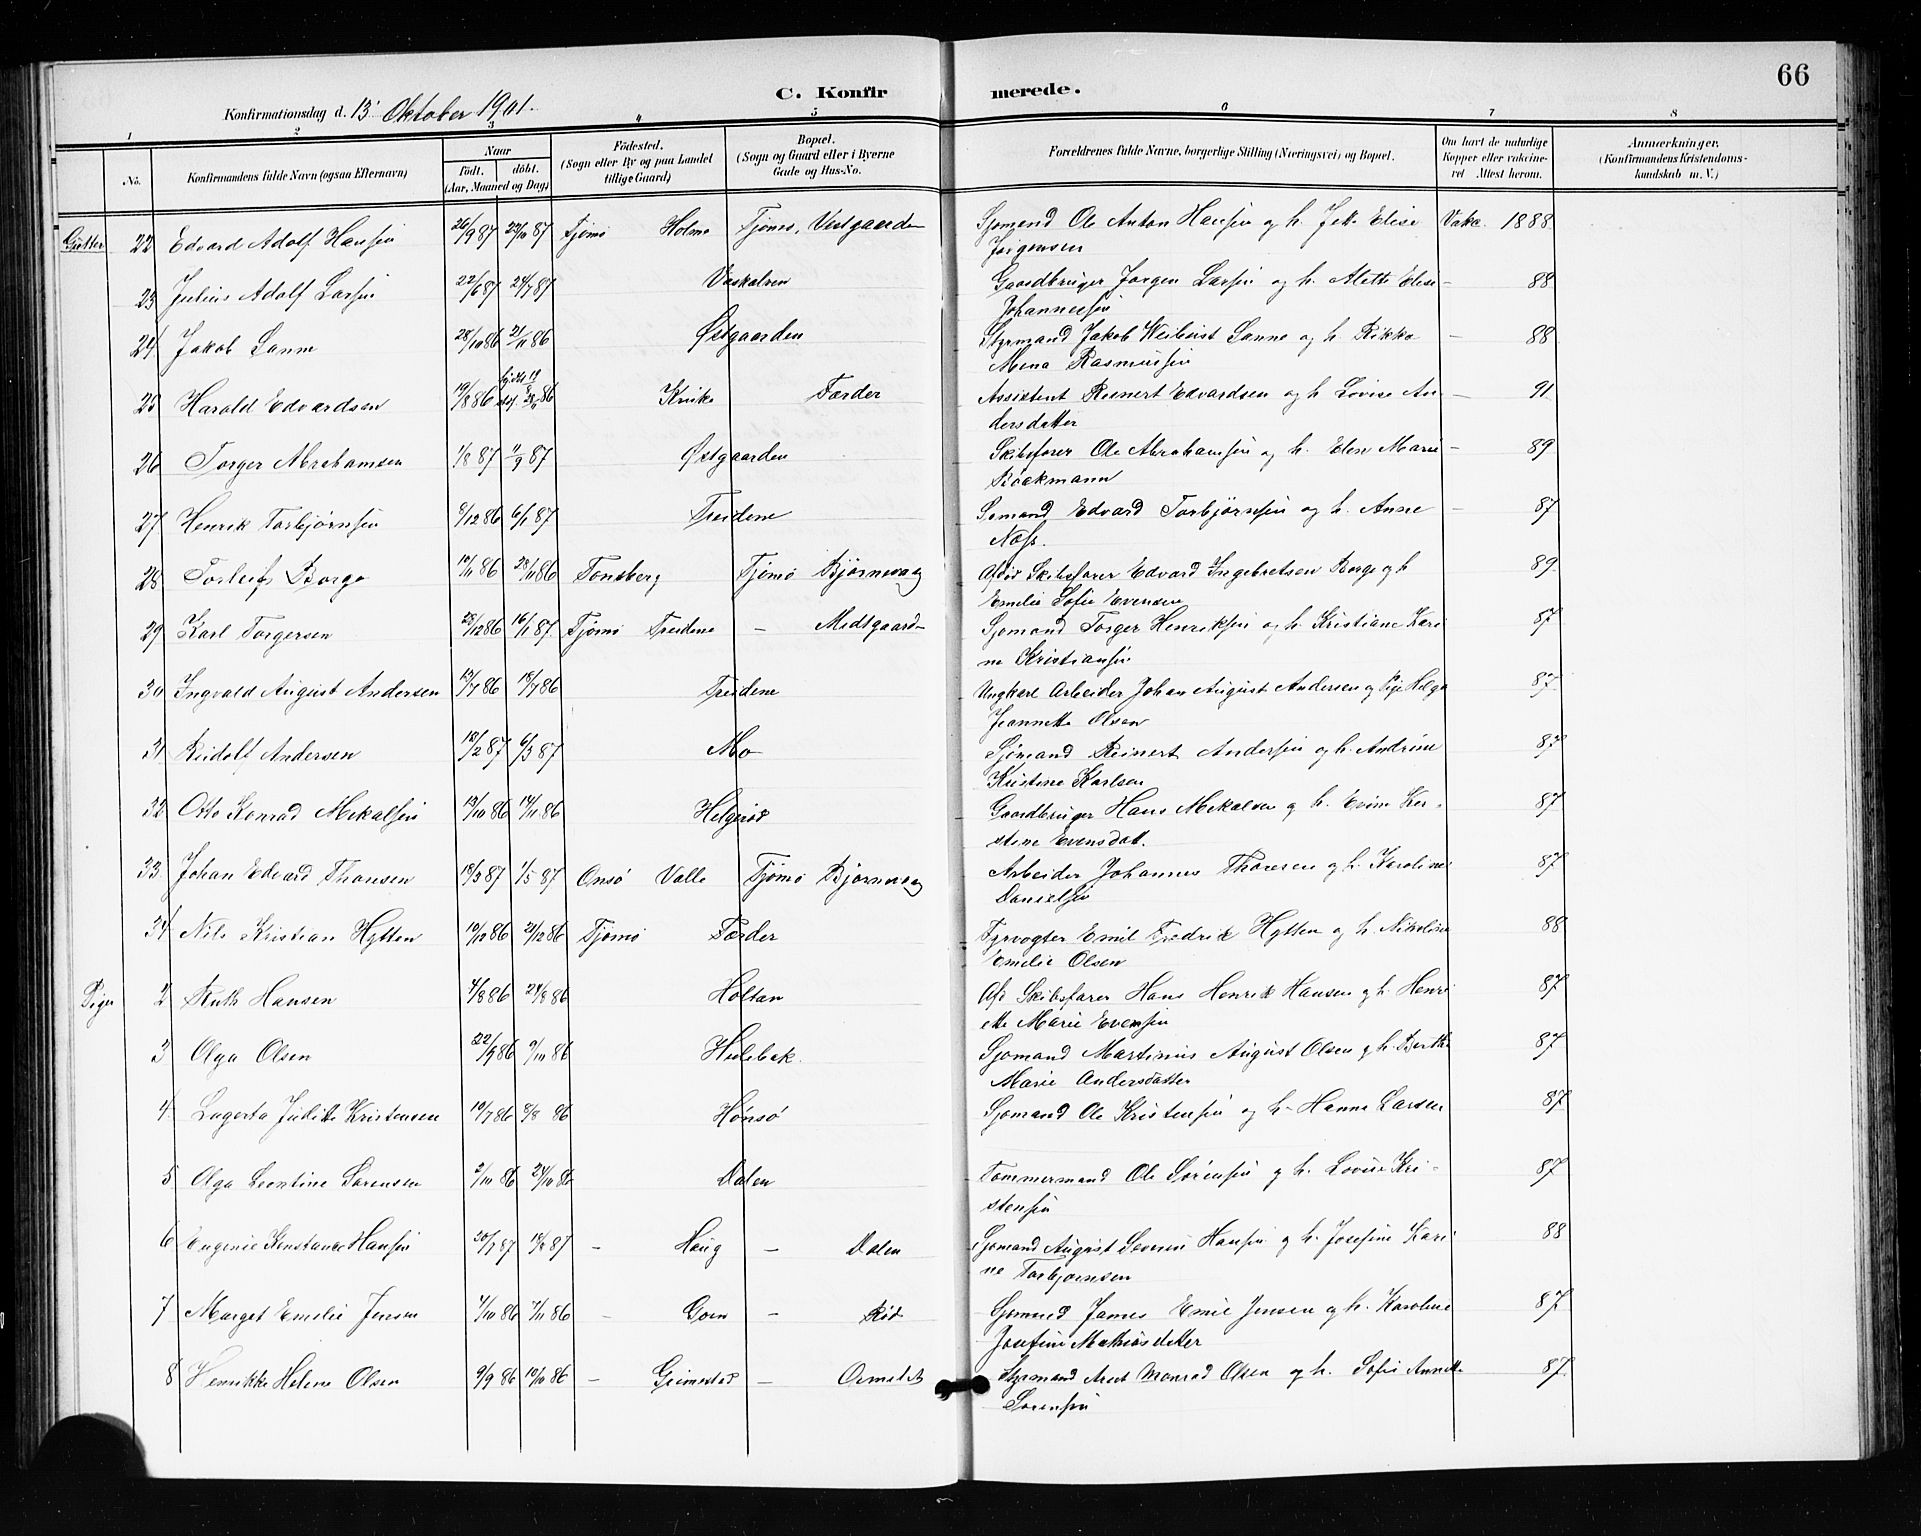 66
C. Konfirmerede.
Konfirmationsdag d. 13' Oktober 1901.
1 2 3 4 5 6 7 8
No.
Konfirmandens fulde Navn (ogsaa Efternavn)
Naar
født. døbt.
(Aar, Maaned og Dag)
Fødested.
(Sogn eller By og paa Landet
tillige Gaard)
Bopæl.
(Sogn og Gaard eller i Byerne
Gade og Hus-No.
Forældrenes fulde Navne, borgerlige Stilling (Næringsvei) og Bopæl.
Om havt de naturlige
Kopper eller vakcine-
ret Attest herom.
Anmærkninger.
(Konfirmandens Kristendoms-
kundskab m. V.)
Gutter 22 Edvard Adolf Hansen 26/9 87 87 Tjømø Holmo Tjømø, Vestgaarden Sjømand Ole Anton Hansen og h. Jette Elise Vakc. 1888
Jørgensen
23 Julius Adolf Larsen 22/6 87 24/7 87 Vaskalven Gaardbruger Jørgen Larsen og h. Alette Elise — 88
Johannesen
24 Jakob Sanne 28/10 86 21/11 86 Østgaarden Styrmand Jakob Weibust Sanne og h. Rikka — 88
Mena Rasmussen
25 Harald Edvardsen 19/8 86 hjdbt 19/8 86 Kruke Færder Assistent Reinert Edvardsen og h. Lovise An- — 91
dersdatter
26 Torger Abrahamsen 1/8 87 11/9 87 Østgaarden Skibsfører Ole Abrahamsen og h. Elen Marie — 89
Bøckmann
27 Henrik Torbjørnsen 8/12 86 6/1 87 Treidene Sømand Edvard Torbjørnsen og h. Anne — 87
Næss.
28 Torleif Borge 10/11 86 28/11 86 Tønsberg Tjømø Bjørnevaag Afdød Skibsfører Edvard Ingebretsen Borge og h 89
Emelie Sofie Evensen
29 Karl Torgersen 28/12 86 16/1 87 Tjømø Treidene — Midtgaard- Sjømand Torger Henriksen og h. Kristiane Kari 87
ne Kristiansen
30 Ingvald August Andersen 13/7 86 18/7 86 Treidene Ungkarl Arbeider Johan August Andersen og Pige Helga 87
Jeannette Olsen
31 Rudolf Andersen 12/2 87 6/3 87 Mo Sjømand Reinert Andersen og h. Andrine 87
Kristine Karlsen
32 Otto Konrad Mikalsen 13/10 86 14/11 86 Helgerød Gaardbruger Hans Mikalsen og h. Evine Ker- 87
stine Evensdatt.
33 Johan Edvard Thoresen 19/3 87 1/5 87 Onsø Valle Tjømø Bjørnevaag Arbeider Johannes Thoresen og h. Karoline 87
Danielsen
34 Nils Kristian Hytten 10/12 86 21/12 86 Tjømø Færder Fyrvogter Emil Fredrik Hytten og h. Nikoline 88
Emelie Olsen
Piger 2 Ruth Hansen 4/8 86 24/8 86 Holtan Afd Skibsfører Hans Henrik Hansen og h. Henri 87
ette Marie Evensen
3 Olga Olsen 22/9 86 9/10 86 Hulebak. Sjømand Martinius August Olsen og h. Berthe 87
Marie Andersdatter
4 Lagerta Judithe Kristensen 10/7 86 8/8 86 Hønsø Sjømand Ole Kristensen og h. Hanna Larsen 87
5 Olga Leontine Sørensen 2/10 86 24/10 86 Dalen Tømmermand Ole Sørensen og h. Lovise Kri- 87
stensen
6 Eugenie Konstance Hansen 20/1 87 87 — Haug — Dalen Sjømand August Severin Hansen og h. Josefine Kari 88
ne Torbjørnsen
7 Marget Emelie Jensen 4/10 86 7/11 86 — Goen — Rød Sjømand James Emil Jensen og h. Karoline 87
Josefine Mathiasdatter
8 Henrikke Helene Olsen 9/9 86 10/10 86 — Grimestad — Ormelet Styrmand Aret Monrad Olsen og h. Sofie Annette 87
Sørensen